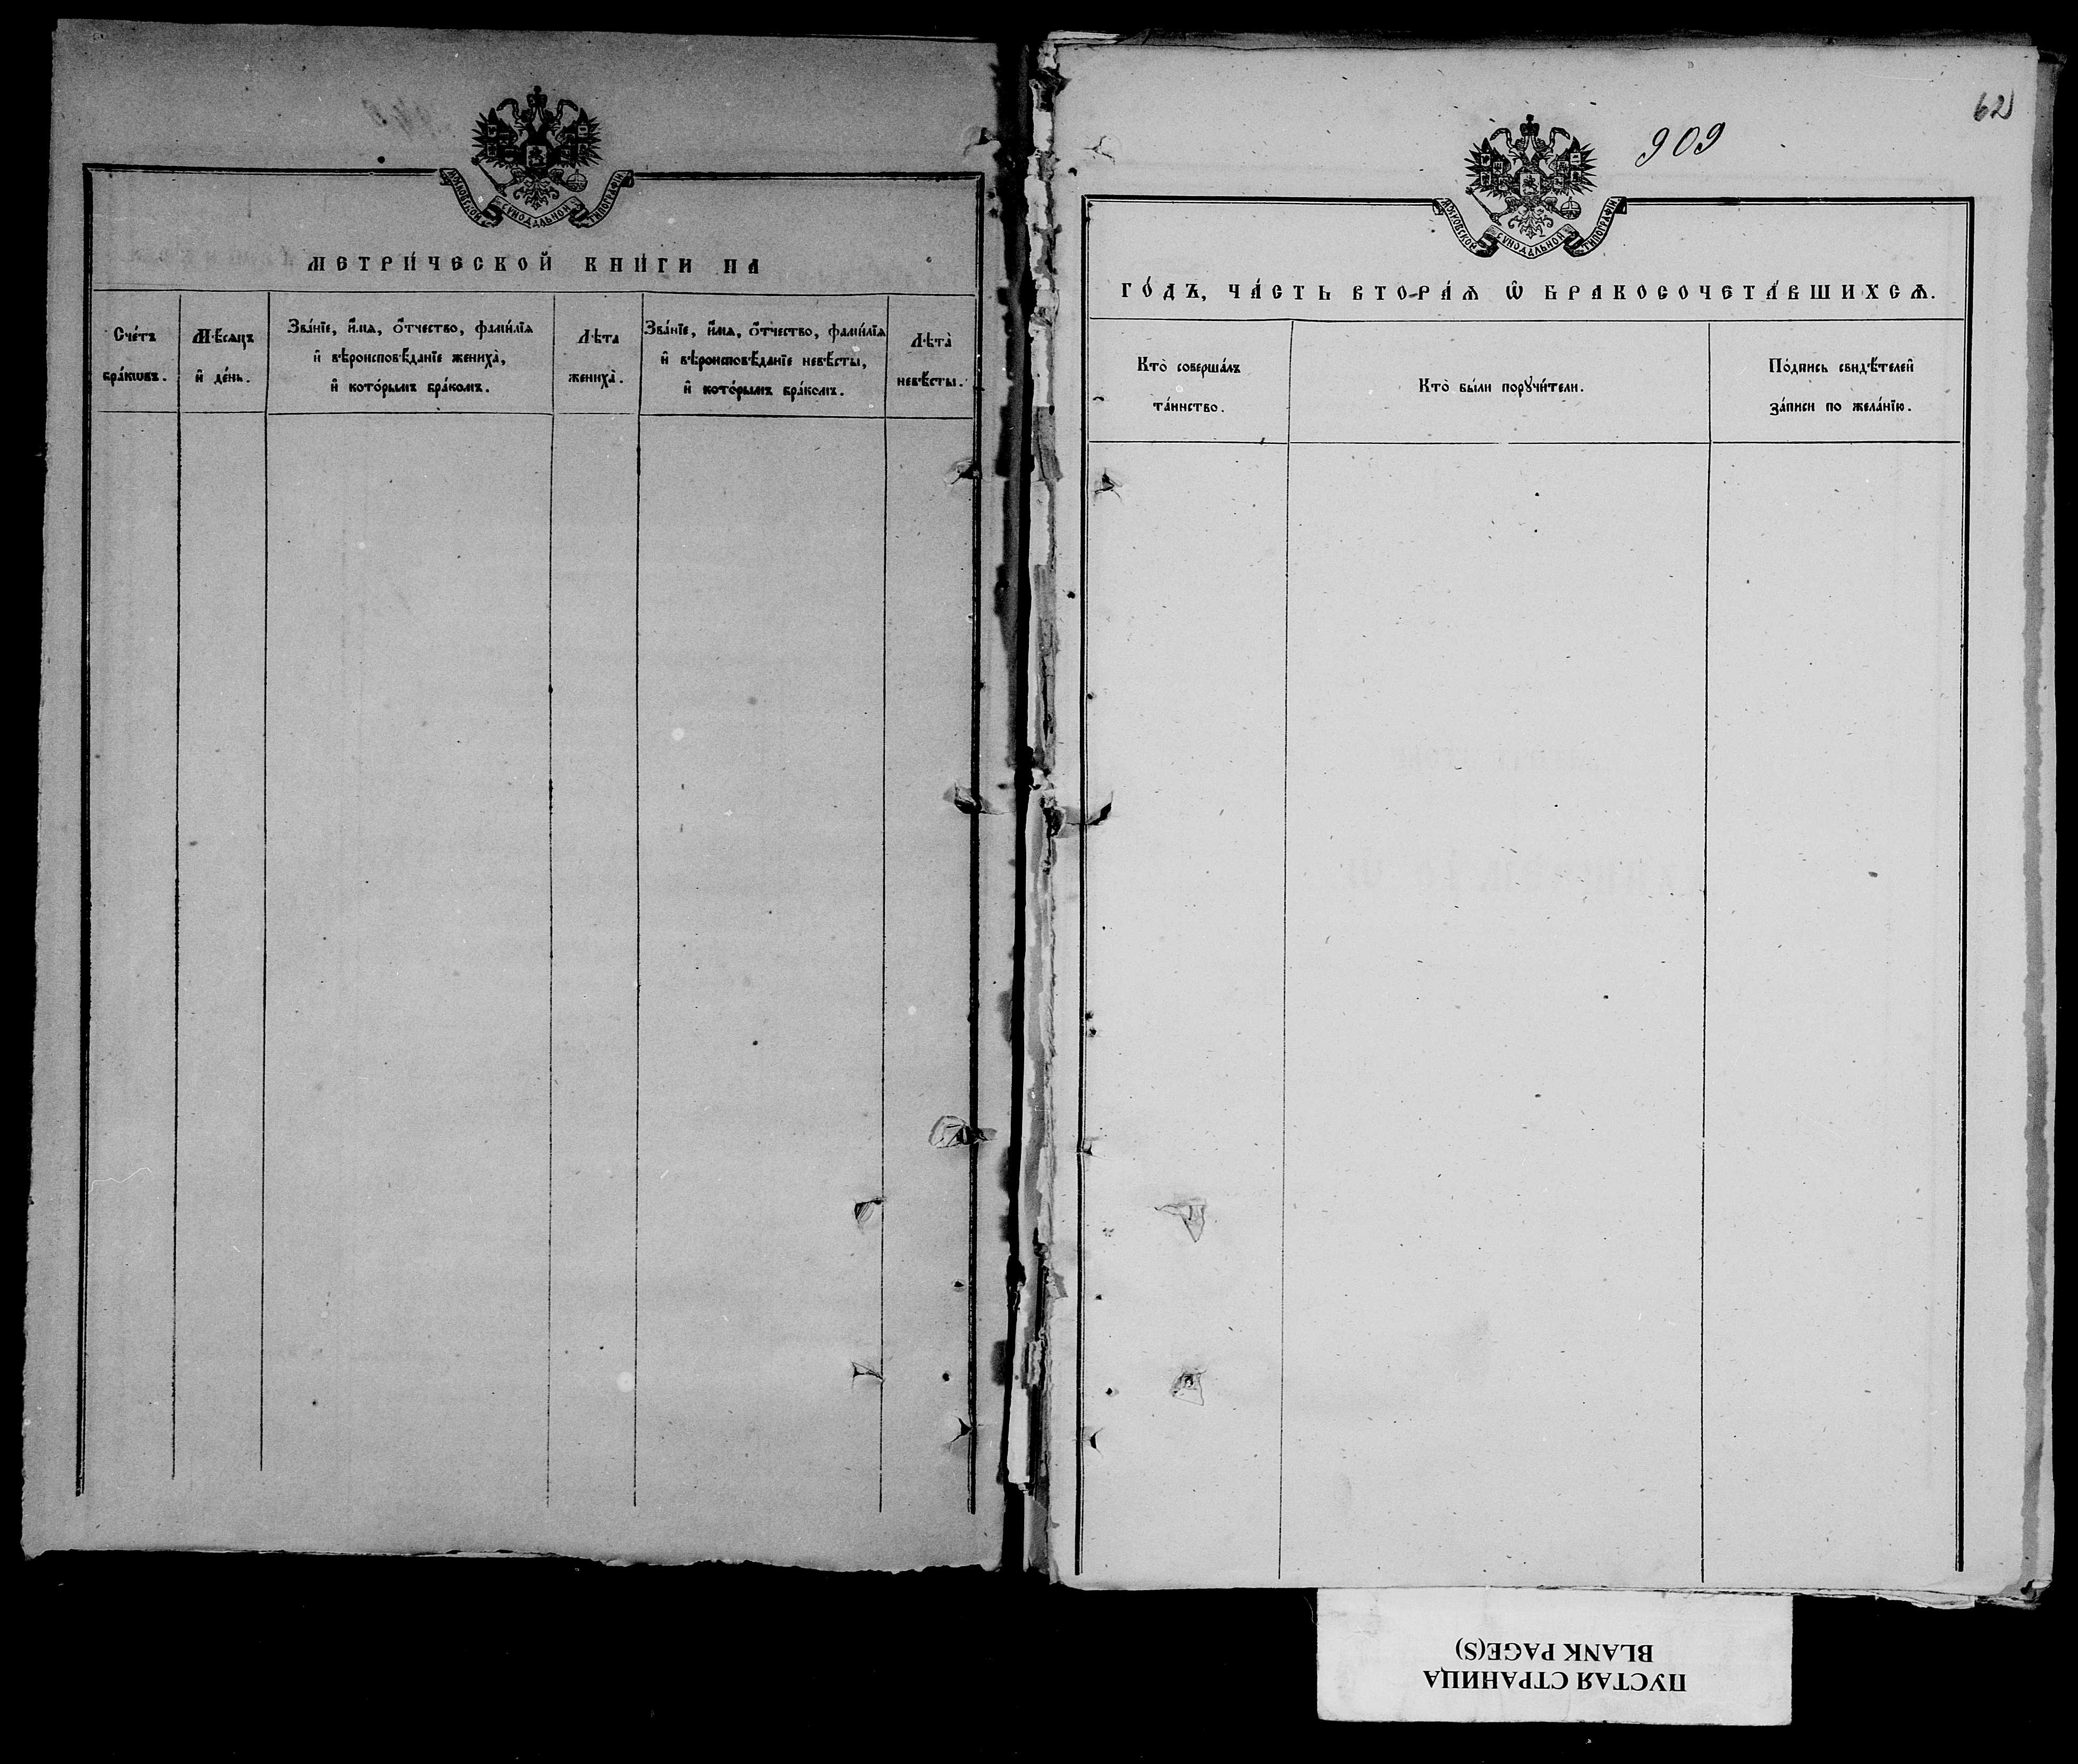 МОСКОВСКОЙ СѴНОДАЛЬНОЙ ТИПОГРАФІИ
МЕТРИ́ЧЕСКОЙ КНИ́ГИ НА
Сче́тъ
бра́кѡвъ.
Мѣ́сяцъ
и҆ де́нь.
Зва́нїе, и҆́мѧ, ѻ҆́тчество, фами́лїѧ
и҆ вѣроисповѣ́данїе жениха̀,
и҆ кото́рымъ бра́комъ.
Лѣта
жениха̀.
Зва́нїе, и҆́мѧ, ѻ҆́тчество, фами́лїѧ
и҆ вѣроисповѣ́данїе невѣ́сты,
и҆ кото́рымъ бра́комъ.
Лѣта̀
невѣ́сты.
62
909
МОСКОВСКОЙ СѴНОДАЛЬНОЙ ТИПОГРАФІИ
ГО́ДЪ, ЧА́СТЬ ВТОРА́Ѧ Ѡ҆ БРАКОСОЧЕТА́ВШИХСѦ.
Кто̀ соверша́лъ
та́инство.
Кто̀ бы́ли порꙋчи́тели.
По́дпись свидѣ́телей
за́писи по жела́нїю.
ПУСТАЯ СТРАНИЦА
BLANK PAGE(S)